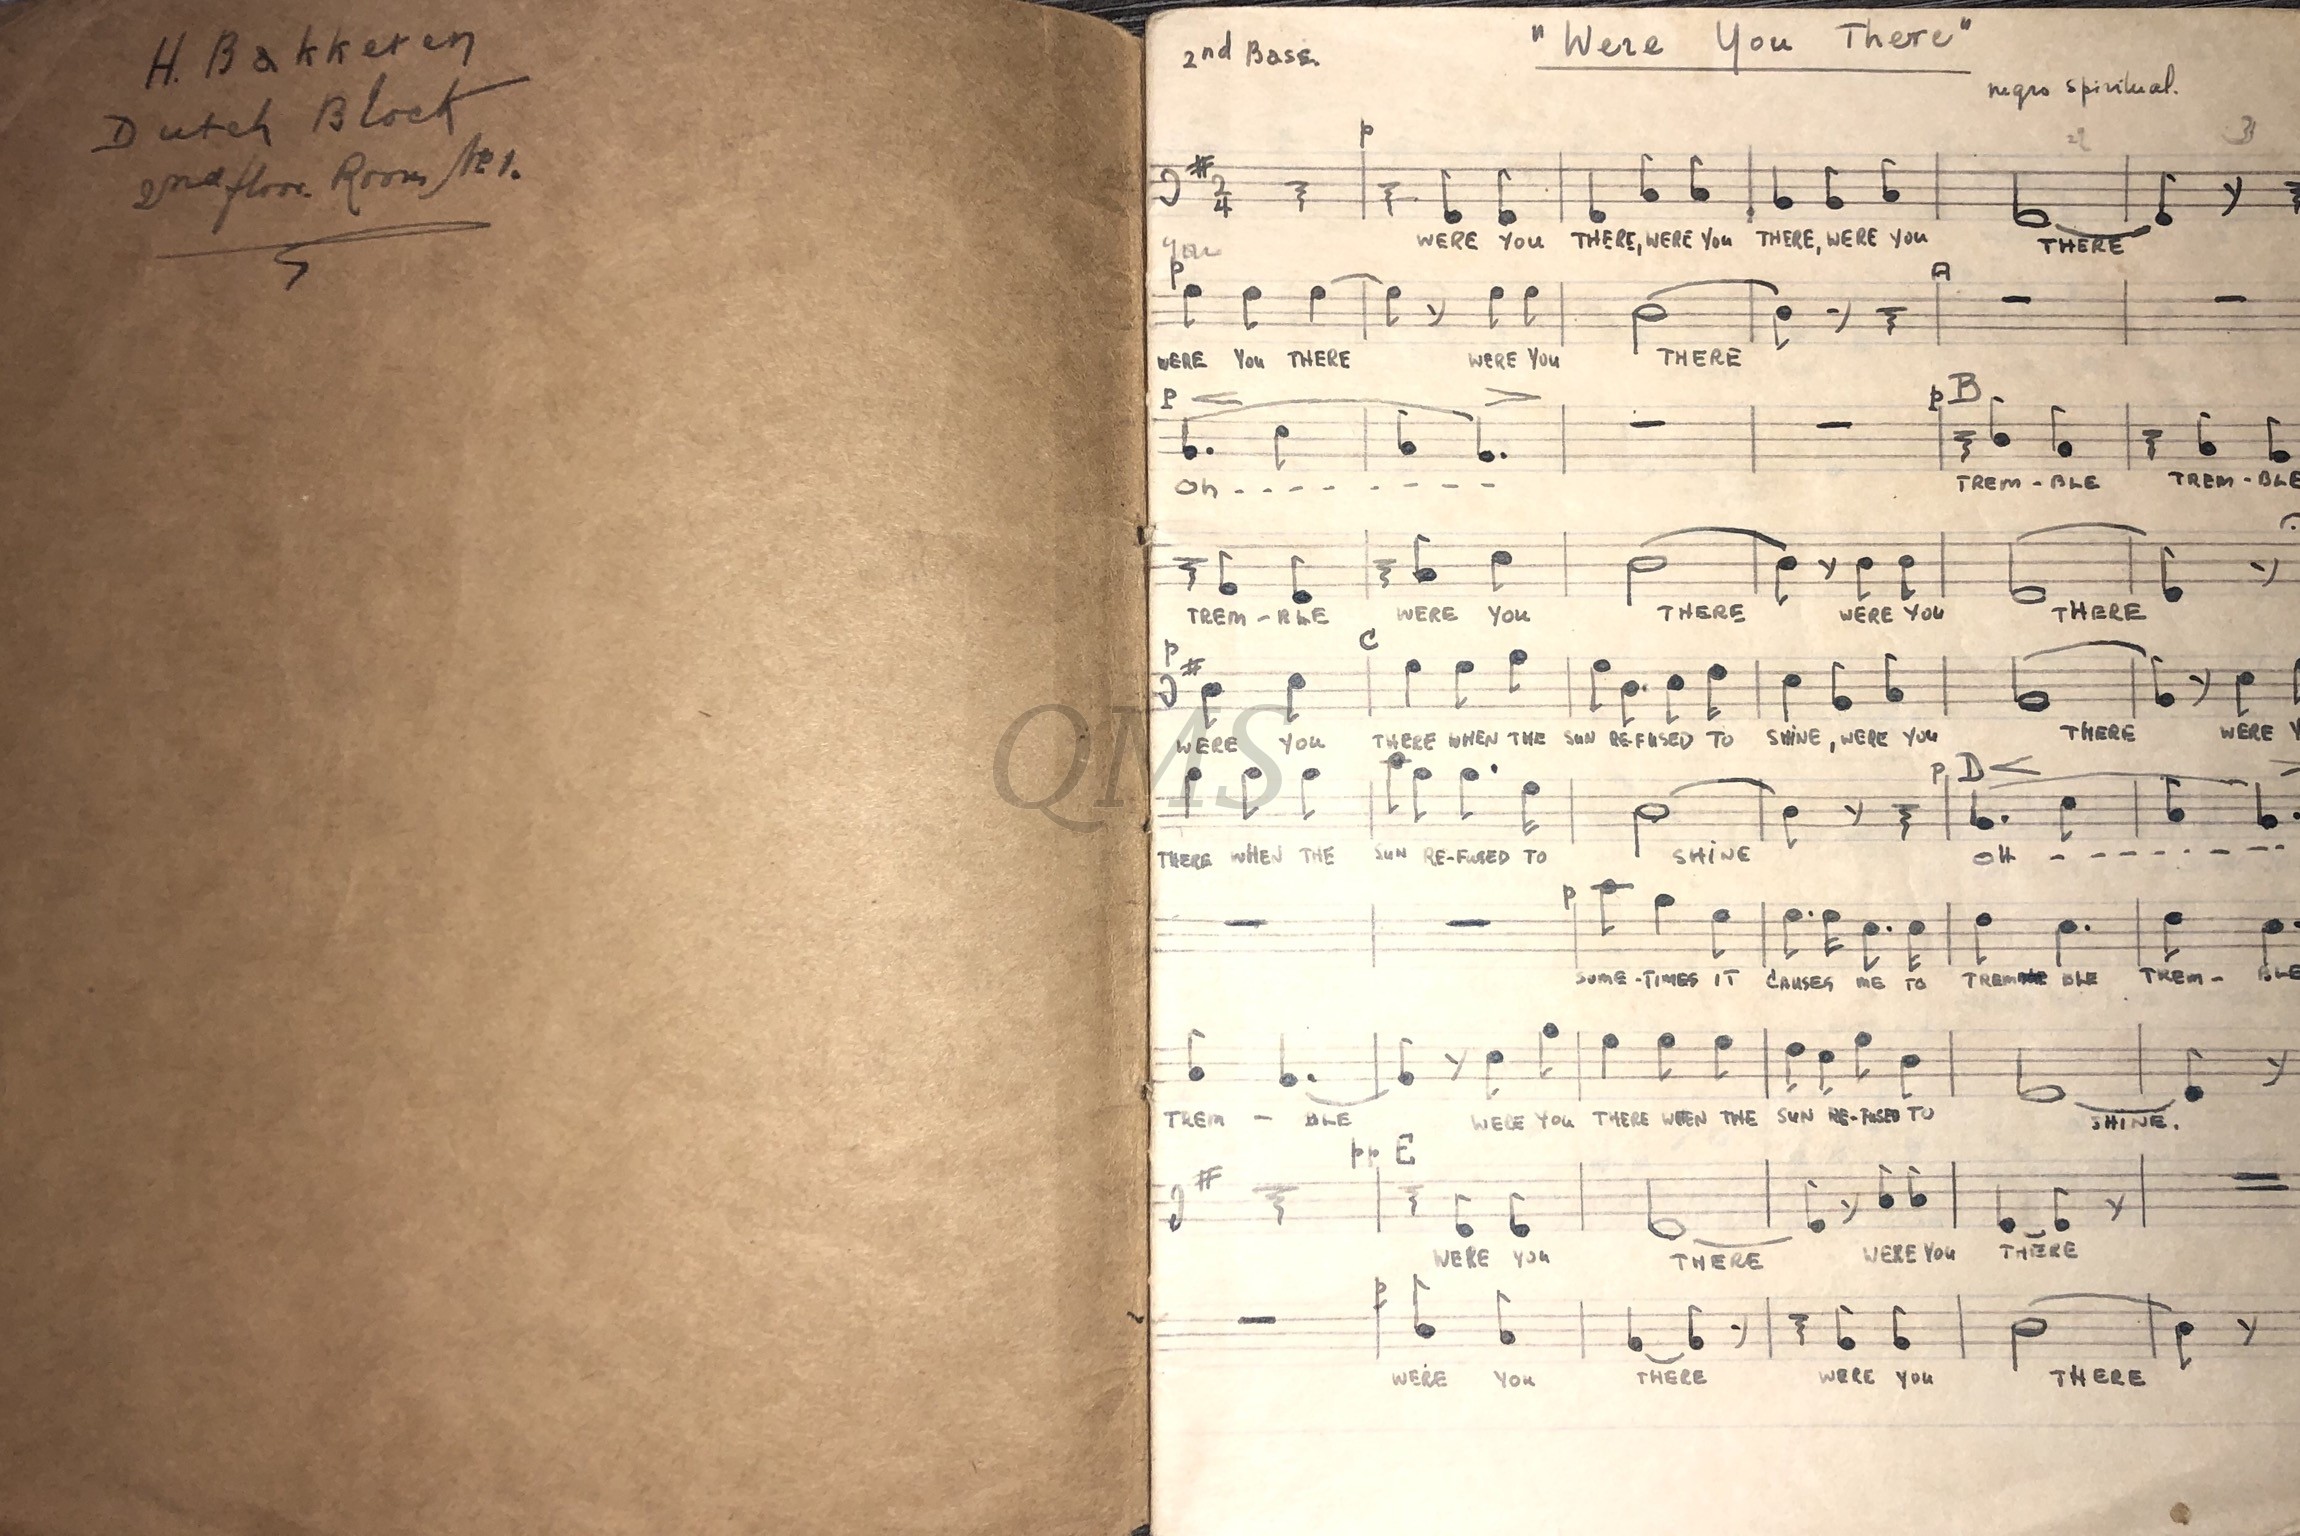 H. Bakkeren
Dutch Block
2nd floor. Room No 1.
2nd Bass.
"Were You There"
negro spiritual.
p
2/4
WERE YOU THERE, WERE YOU THERE, WERE YOU THERE
p A
WERE YOU THERE WERE YOU THERE
p B
Oh - - - - - - - - TREM-BLE TREM-BLE
TREM-BLE WERE YOU THERE WERE YOU THERE
p C
WERE YOU THERE WHEN THE SUN RE-FUSED TO SHINE, WERE YOU THERE WERE
p D
THERE WHEN THE SUN RE-FUSED TO SHINE OH - - - - - - -
p
SOME-TIMES IT CAUSES ME TO TREM BLE TREM- BLE
TREM - BLE WERE YOU THERE WHEN THE SUN RE-FUSED TO SHINE.
pp E
WERE YOU THERE WERE YOU THERE
p
WERE YOU THERE WERE YOU THERE
QMS